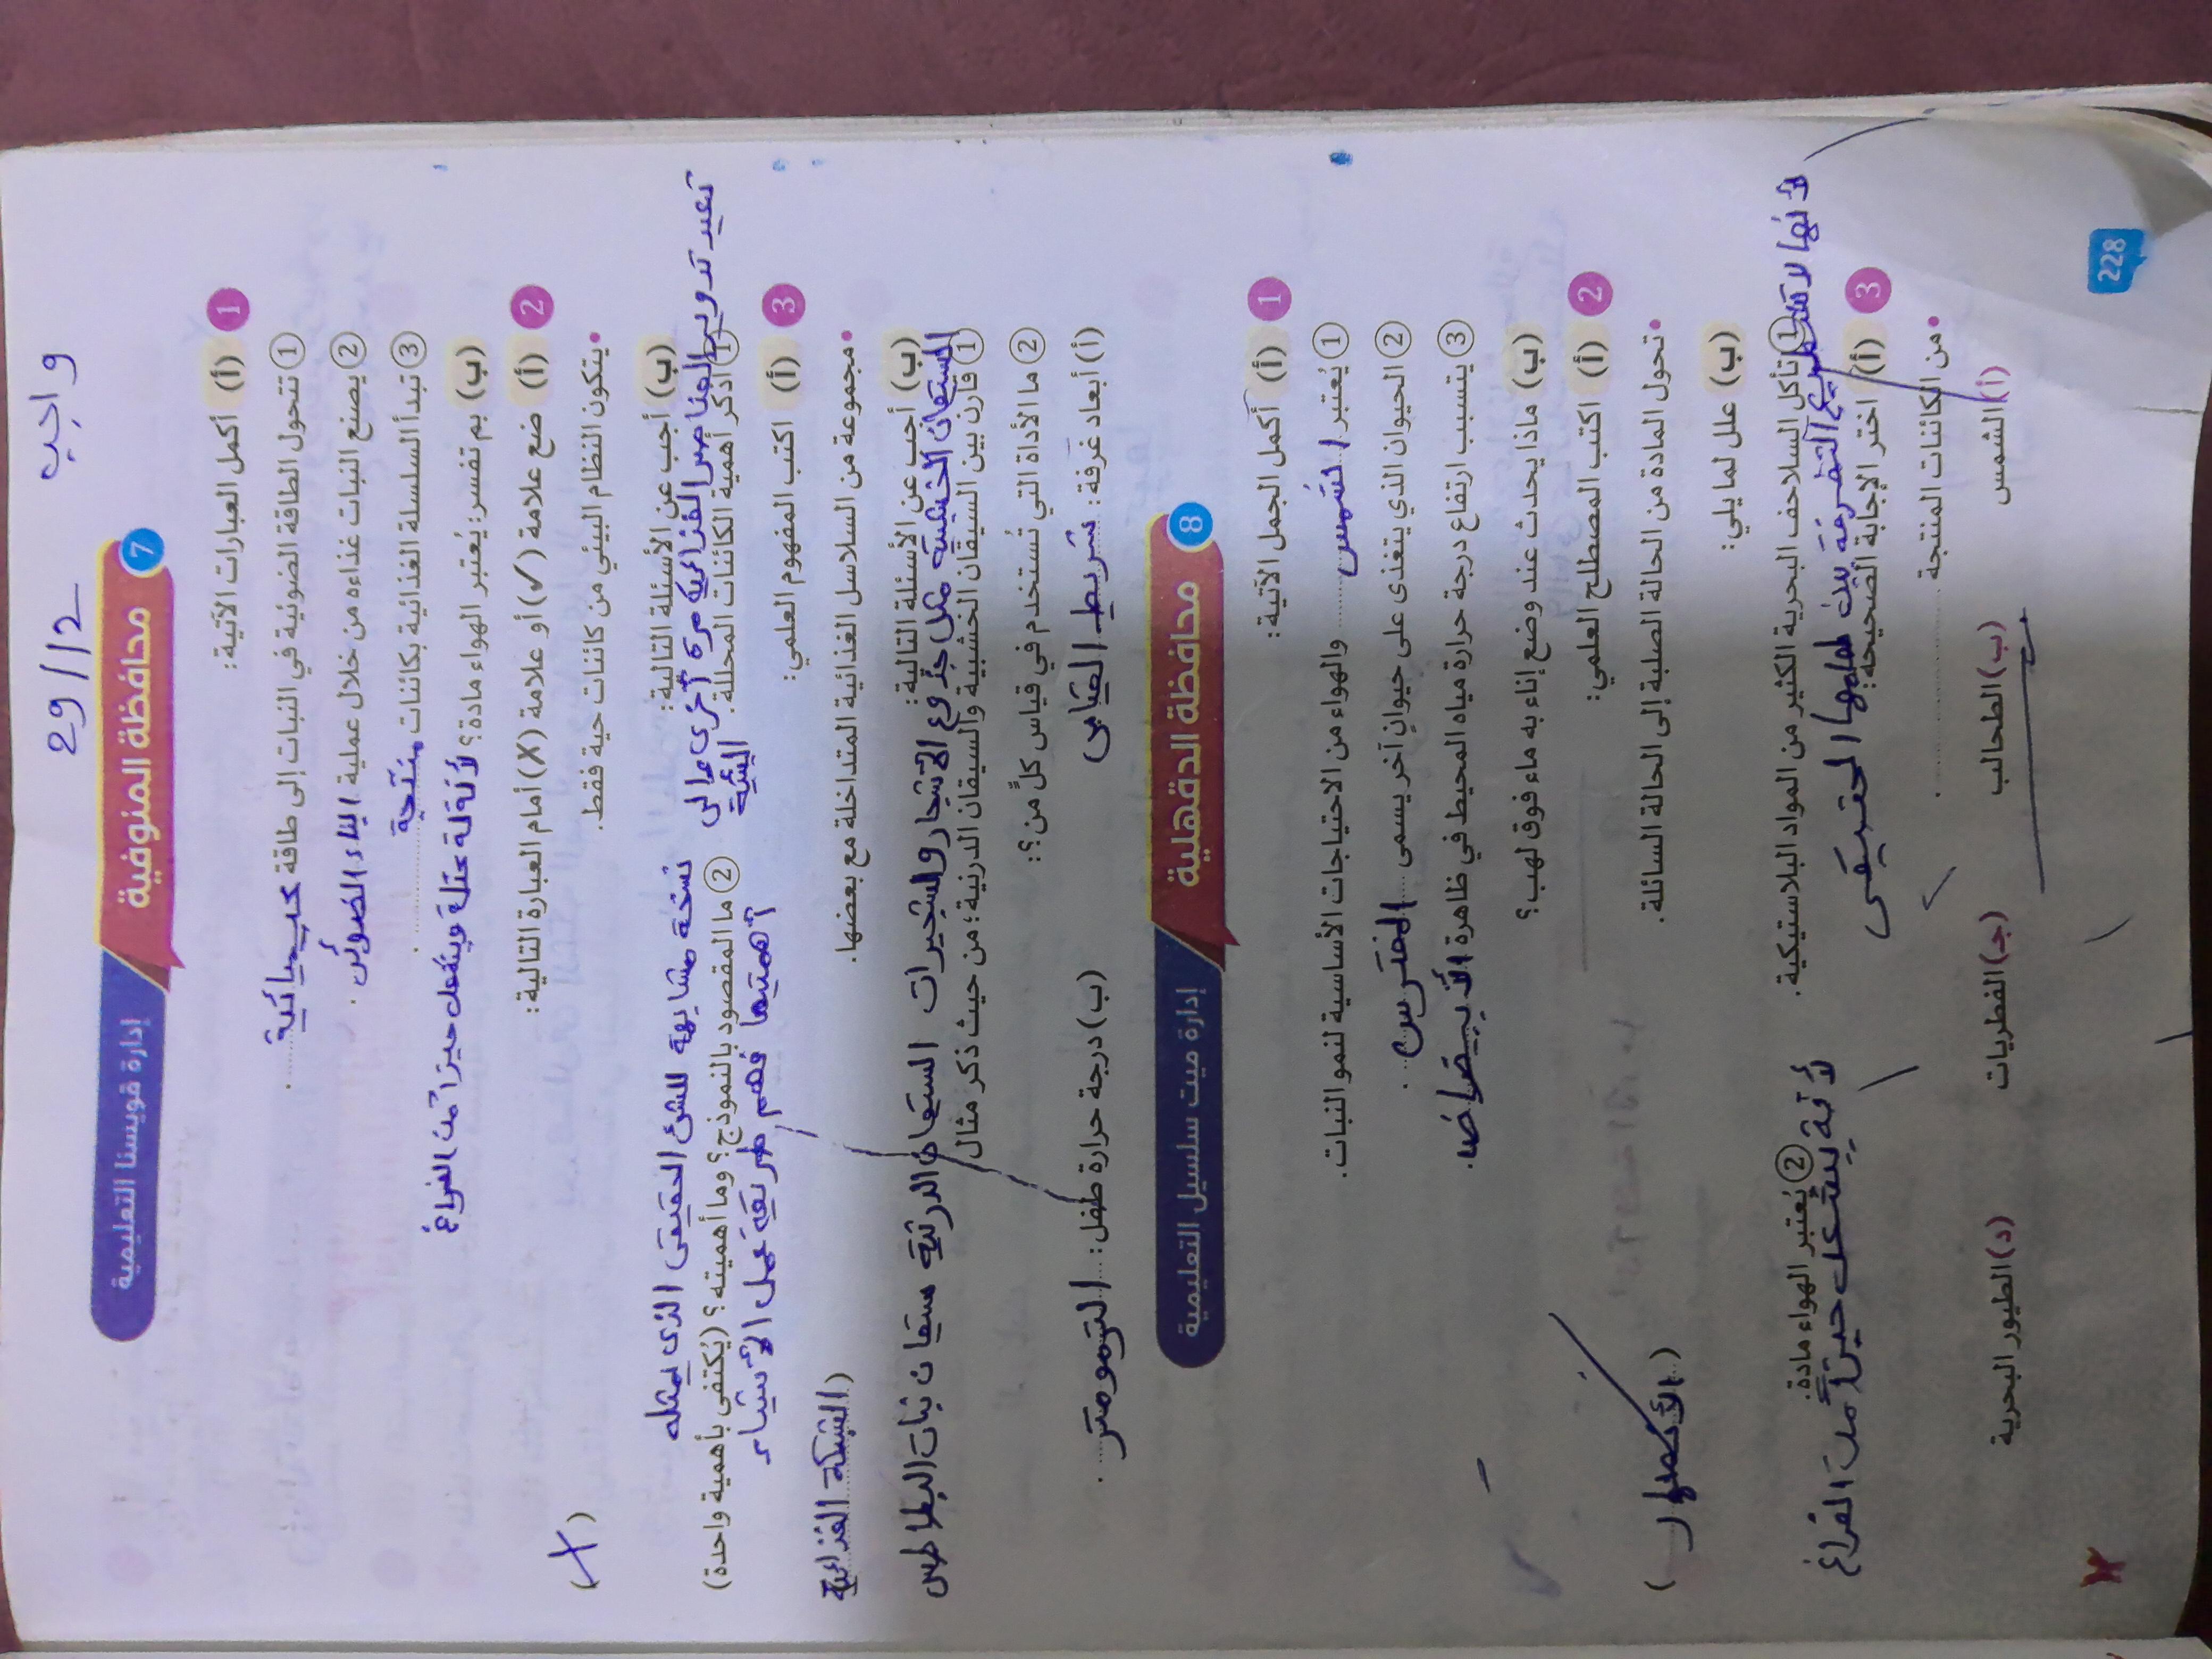 واجب 29/12
7 محافظة المنوفية إدارة قويسنا التعليمية
1 (أ) أكمل العبارات الآتية:
① تتحول الطاقة الضوئية في النبات إلى طاقة كيميائية.
② يصنع النبات غذاءه من خلال عملية البناء الضوئى.
③ تبدأ السلسلة الغذائية بكائنات منتجة.
(ب) بم تفسر: يُعتبر الهواء مادة؟ لأن له كتلة ويشغل حيزاً من الفراغ
2 (أ) ضع علامة (✓) أو علامة (X) أمام العبارة التالية:
• يتكون النظام البيئي من كائنات حية فقط. (X)
(ب) أجب عن الأسئلة التالية:
تعيد تدوير العناصر الغذائية مرة أخرى إلى البيئة
نسخة مشابهة للشئ الحقيقى الذى يمثله
① اذكر أهمية الكائنات المحللة. ② ما المقصود بالنموذج؟ وما أهميته؟ (يُكتفى بأهمية واحدة)
أهميتها فهم طريقة عمل الأشياء
3 (أ) اكتب المفهوم العلمي:
• مجموعة من السلاسل الغذائية المتداخلة مع بعضها. (الشبكة الغذائية)
(ب) أجب عن الأسئلة التالية:
السيقان الخشبية مثل جذوع الأشجار والشجيرات السيقان الدرنية سيقان نبات البطاطس
① قارن بين السيقان الخشبية والسيقان الدرنية؛ من حيث ذكر مثال
② ما الأداة التي تُستخدم في قياس كلٍّ من؟:
(أ) أبعاد غرفة: شريط القياس (ب) درجة حرارة طفل: الترمومتر.
8 محافظة الدقهلية إدارة ميت سلسيل التعليمية
1 (أ) أكمل الجمل الآتية:
① يُعتبر الشمس والهواء من الاحتياجات الأساسية لنمو النبات.
② الحيوان الذي يتغذى على حيوان آخر يسمى المفترس.
③ يتسبب ارتفاع درجة حرارة مياه المحيط في ظاهرة الأبيضاض.
(ب) ماذا يحدث عند وضع إناء به ماء فوق لهب؟
2 (أ) اكتب المصطلح العلمي:
• تحول المادة من الحالة الصلبة إلى الحالة السائلة. (الأنصهار)
(ب) علل لما يلي:
① تأكل السلاحف البحرية الكثير من المواد البلاستيكية. ② يُعتبر الهواء مادة.
لأنها لا تستطيع التفرقة بين طعامها الحقيقى لأنه يشغل حيزاً من الفراغ
3 (أ) اختر الإجابة الصحيحة:
• من الكائنات المنتجة ..........
(أ) الشمس (ب) الطحالب (جـ) الفطريات (د) الطيور البحرية
228